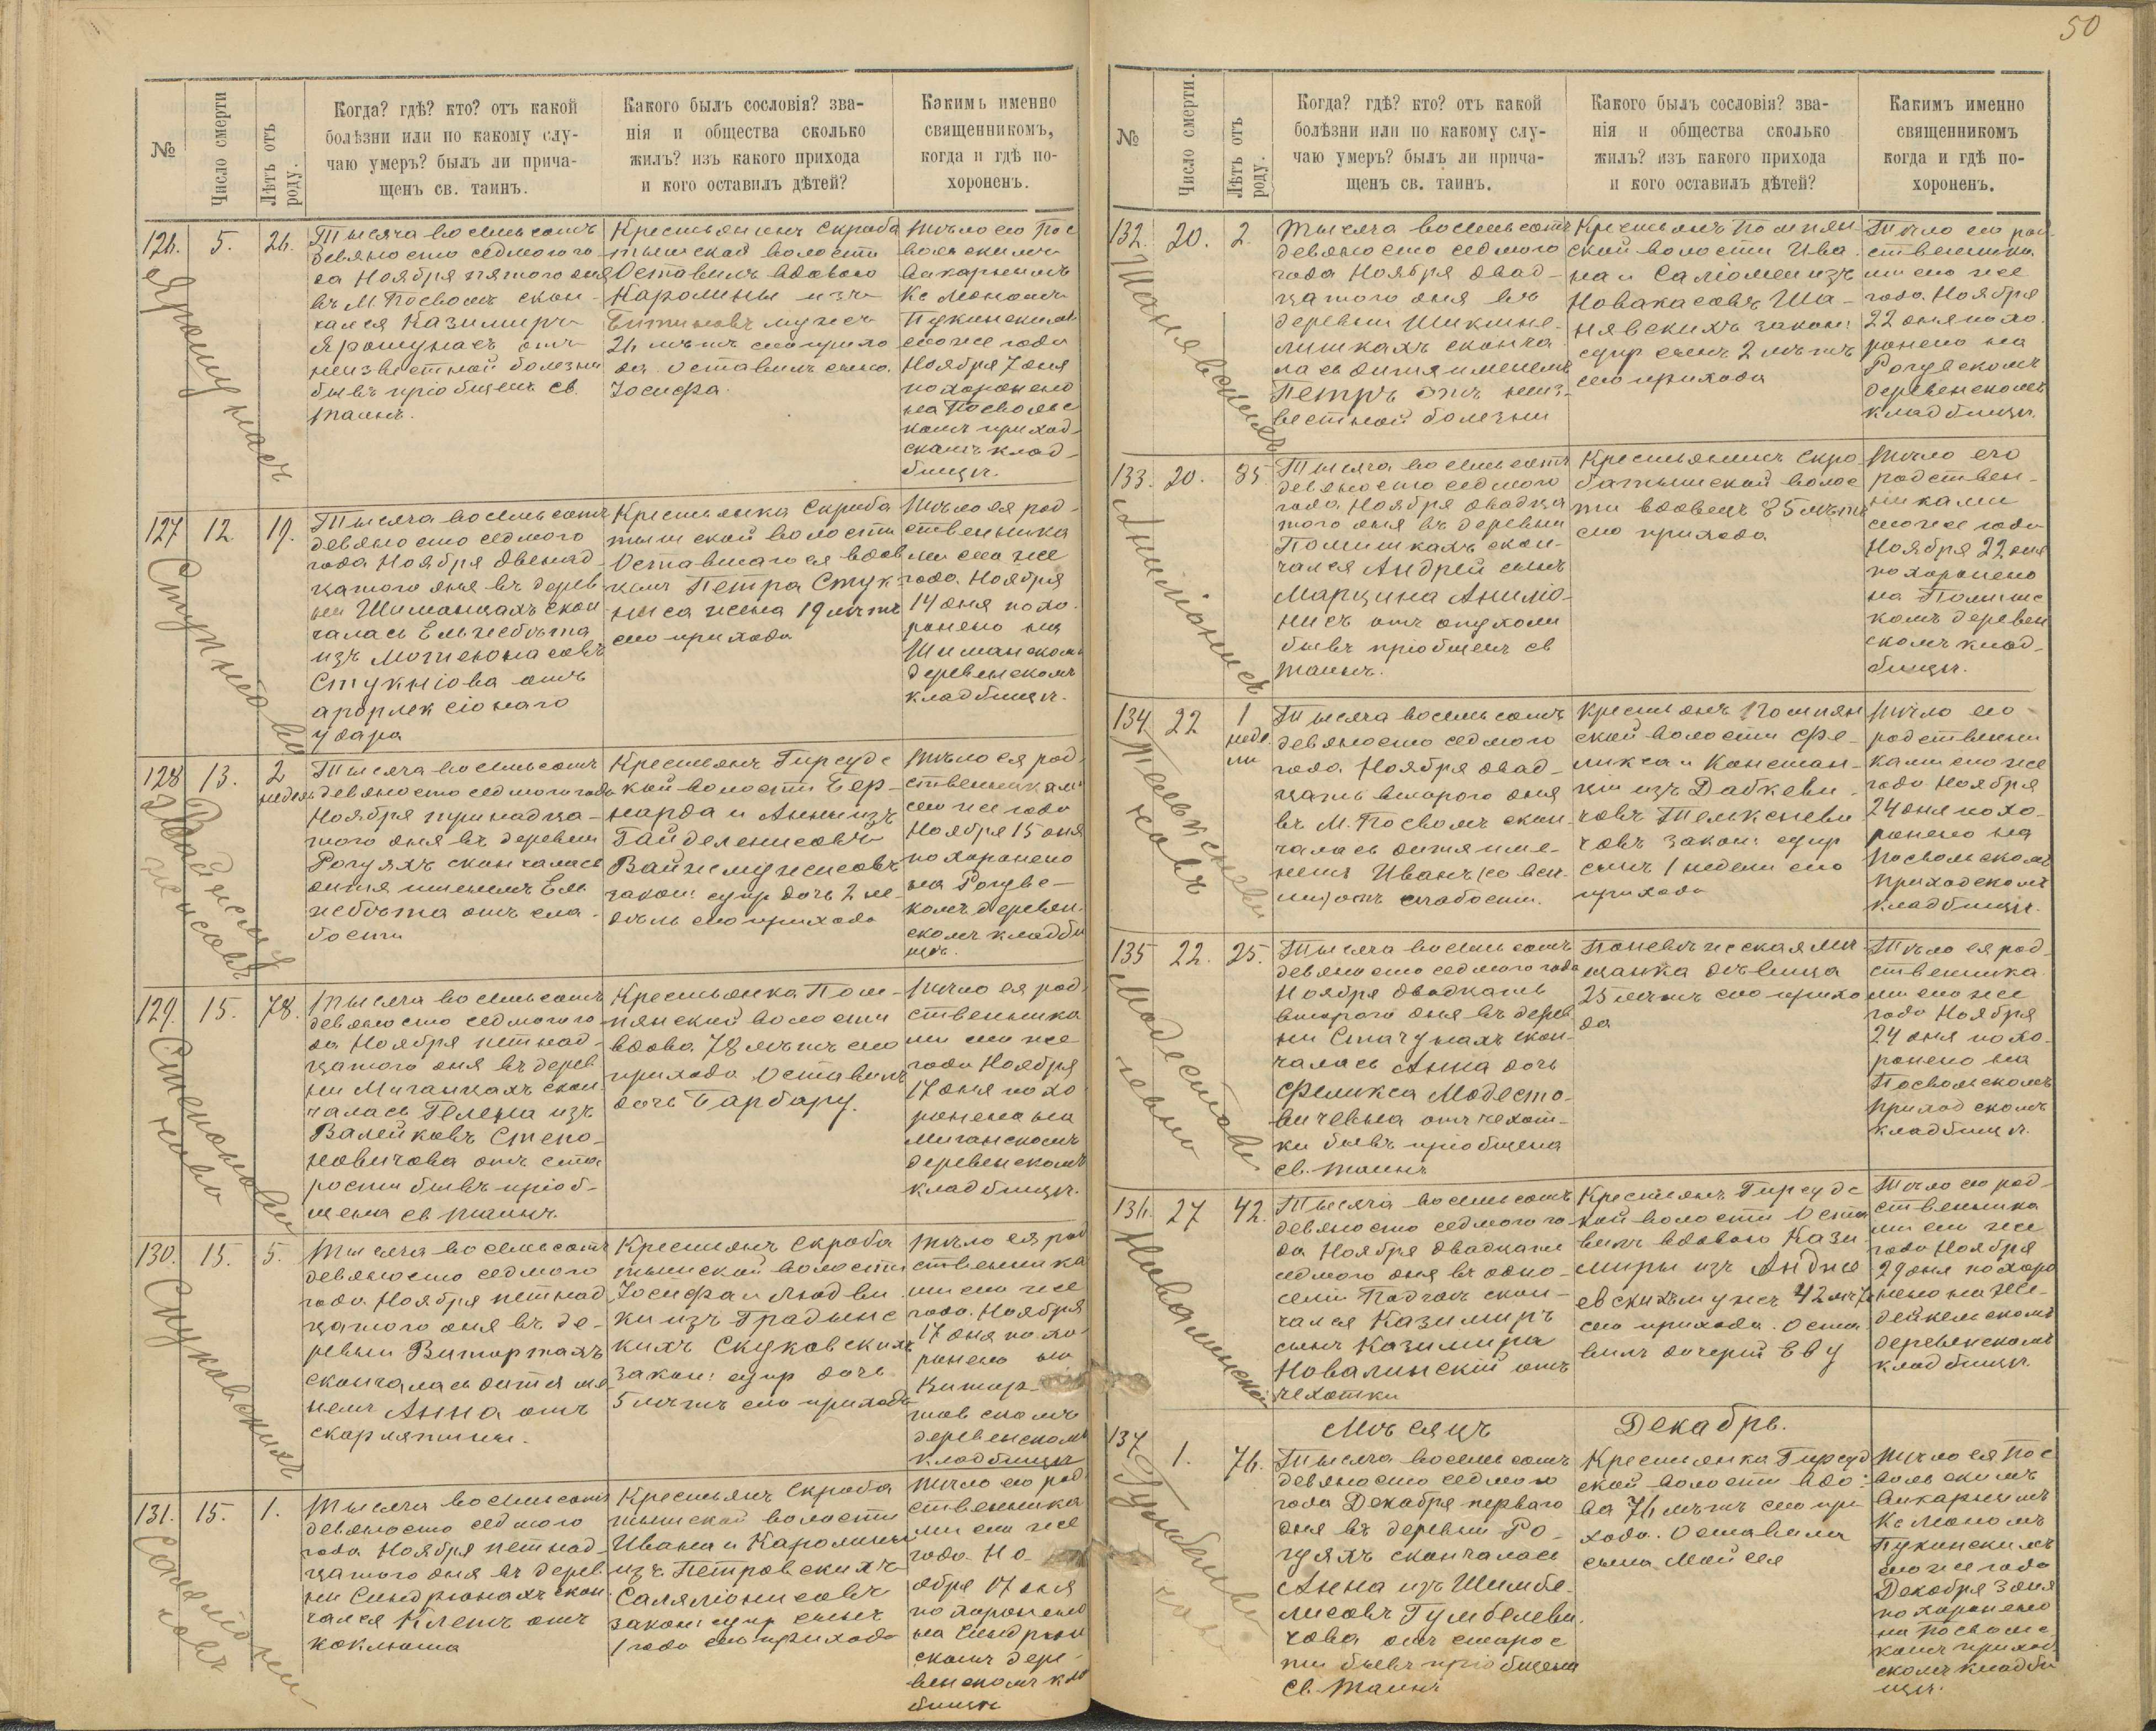 50
№
Число смерти
Лѣтъ отъ роду.
Когда? гдѣ? кто? отъ какой
болѣзни или по какому слу-
чаю умеръ? былъ ли прича-
щенъ св. таинъ.
Какого былъ сословія? зва-
нія и общества сколько
жилъ? изъ какого прихода
и кого оставилъ дѣтей?
Какимъ именно
священникомъ,
когда и гдѣ по-
хороненъ.
126. 5. 26.
Ярошунасъ
Тысяча восемьсотъ
девяносто седмого го
да Ноября пятого дня
въ М. Посволь скон-
чался Казимиръ
Ярошунасъ отъ
неизвестной болезни
бывъ пріобщенъ св.
таинъ.
Крестьянинъ Скроба
тышской волости
Оставилъ вдовою
Каролины изъ
мужъ
26 лѣтъ сего прихо
да. Оставилъ сына
Іосифа.
Тѣло его Пос
вольскимъ
викарнымъ
Кс Мономъ
Пукинскимъ
сего же года
Ноября 7 дня
похоронено
на Посвольс
комъ приход-
скомъ клад-
бищѣ.
127 12 19.
Стукніова
Тысяча восемьсотъ
девяносто седмого
года Ноября двенад-
цатого дня въ дерев
ни Шиманцахъ скон
чалась Ельжебѣта
изъ Мотеюнасовъ
Стукніова отъ
апоплексіонаго
удара
Крестьянка Скроба
тышской волости
Оставшагося вдов
цемъ Петра Стук-
ниса жена 19 лѣтъ
сего прихода
Тѣло ея род-
ственника
ми сего же
года Ноября
14 дня похо-
ронено на
Шиманскомъ
деревенскомъ
кладбищѣ.
128 13. 2 недель
Вайнежу
жисовъ
Тысяча восемьсотъ
девяносто седмого года
Ноября тринадца-
того дня въ деревни
Рогуяхъ скончалась
дитя именемъ Ель
жебѣта отъ сла-
бости
Крестьянъ Гирсудс
кой волости Бер-
нарда и Анны изъ
Гайделенисовъ
закон: супр дочь 2 не-
дѣль сего прихода
Тѣло ея род-
ственниками
сего же года
Ноября 15 дня
похоронено
на Рогувс-
комъ деревен
скомъ кладби
щѣ.
129. 15. 78.
Стеноови
чово
Тысяча восемьсотъ
девяносто седмого го
да Ноября петнад-
цатого дня въ дерев
ни Миганцахъ скон
чалась Гелена изъ
Валейковъ Степо-
новичова отъ ста
рости бывъ пріоб-
щена св таинъ.
Крестьянка Пом-
пянской волости
вдова 78 лѣтъ сего
прихода Оставилъ
дочь Барбару.
Тѣло ея род-
ственника
ми сего же
года Ноября
17 дня похо
ронено на
Миганскомъ
деревенскомъ
кладбищѣ.
130. 15. 5.
Скуковскихъ
Тысяча восемьсотъ
девяносто седмого
года Ноября петнад
цатого дня въ де-
ревни Витортахъ
скончалась дитя име
немъ Анна отъ
скарлятины.
Крестьянъ Скроба
тышской волости
Іосифа и Людви-
ки изъ Градынс
кихъ Скуковскихъ
закон: супр дочь
5 лѣтъ сего прихода
Тѣло ея род
ственника
ми сего же
года. Ноября
17 дня похо-
ронено на
деревенскомъ
кладбищѣ
131. 15. 1.
Саляміони
совъ
Тысяча восемьсотъ
девяносто седмого
года Ноября петнад-
цатого дня въ дерев
ни Синдріонахъ скон
чался Клемъ отъ
коклюша
Крестьянъ Скроба
тышской волости
Ивана и Каролины
изъ Петровскихъ
Саляміонисовъ
закон: супр сынъ
1 года сего прихода
Тѣло его род
ственника
ми сего же
года. Но-
ября 17 дня
похоронено
на Синдріон
скомъ дере-
венскомъ кла
бищѣ
№
Число смерти.
Лѣтъ отъ роду.
Когда? гдѣ? кто? отъ какой
болѣзни или по какому слу-
чаю умеръ? былъ ли прича-
щенъ св. таинъ.
Какого былъ сословія? зва-
нія и общества сколько
жилъ? изъ какого прихода
и кого оставилъ дѣтей?
Какимъ именно
священникомъ
когда и гдѣ по-
хороненъ.
132. 20. 2.
Шанявскихъ
Тысяча восемьсотъ
девяносто седмого
года Ноября двад-
цатого дня въ
деревни Шикшне-
лишкахъ сконча
лась дитя именемъ
Петръ отъ неиз-
вестной болезни
Крестьянъ Помпян
ской волости Ива-
на и Саломеи изъ
Новакасовъ Ша-
нявскихъ закон:
супр сынъ 2 лѣтъ
сего прихода
Тѣло его род
ственника
ми сего же
года Ноября
22 дня похо-
ронено на
Рогувскомъ
деревенскомъ
кладбищѣ.
133. 20. 85
Анимонисъ
Тысяча восемьсотъ
девяносто седмого
года Ноября двадца
того дня въ деревни
Помишкахъ скон-
чался Андрей сынъ
Марцина Анимо-
нисъ отъ опухоли
бывъ пріобщенъ св
таинъ.
Крестьянинъ Скро
батышской волос
ти вдовецъ 85 лѣтъ
сего прихода
Тѣло его
родствен-
никами
сего же года
Ноября 22 дня
похоронено
на Помишс
комъ деревен
скомъ клад-
бищѣ.
134 22 1 неде ли
Темксневи
човъ
Тысяча восемьсотъ
девяносто седмого
года Ноября двад-
цать второго дня
въ М. Посволь скон-
чалась дитя име-
немъ Иванъ отъ слабости.
Крестьянъ Помпян
ской волости Фе-
ликса и Констан-
ціи изъ Дабкеви-
човъ Темксневи
човъ закон: супр
сынъ 1 недели сего
прихода
Тѣло его
родственни
ками сего же
года Ноября
24 дня похо-
ронено на
Посвольскомъ
приходскомъ
кладбищѣ.
135 22. 25.
Модестови
чевна
Тысяча восемьсотъ
девяносто седмого года
Ноября двадцать
второго дня въ дерев
ни Стачунахъ скон-
чалась Анна дочь
Феликса Модесто-
вичевна отъ чехот-
ки бывъ пріобщена
св. таинъ
Поневѣжская мѣ-
щанка дѣвица
25 лѣтъ сего прихо
да
Тѣло ея род
ственника
ми сего же
года Ноября
24 дня похо-
ронено на
Посвольскомъ
приходскомъ
кладбищѣ.
136. 27 42.
Новалинскій
Тысяча восемьсотъ
девяносто седмого го-
да Ноября двадцать
седмого дня въ одно-
селіи Подгай скон-
чался Казимиръ
сынъ Казимира
Новалинскій отъ
чехотки
Крестьянъ Гирсудс
кой волости Оста
вилъ вдовою Кази
миры изъ Андже
евскихъ мужъ 42 лѣтъ
сего прихода. Оста
вилъ дочерй Еву
Тѣло его род-
ственника
ми сего же
года Ноября
29 дня похоро
нено на Же-
дейкельскомъ
деревенскомъ
кладбищѣ.
Мѣсяцъ Декабрь.
137 1. 76.
Гумбелеви
чова
Тысяча восемьсотъ
девяносто седмого
года Декабря перваго
дня въ деревни Ро-
гуяхъ скончалась
Анна изъ Шимбе-
лисовъ Гумбелеви-
чова отъ старос
ти бывъ пріобщена
св. таинъ
Крестьянка Гирсуд
ской волости вдо-
ва 76 лѣтъ сего при
хода. Оставила
сына Мойсея
Тѣло ея Пос
вольскимъ
викарнымъ
Кс Мономъ
Пукинскимъ
сего же года
Декабря 3 дня
похоронено
на Посвольс
комъ приход
скомъ кладби
щѣ.